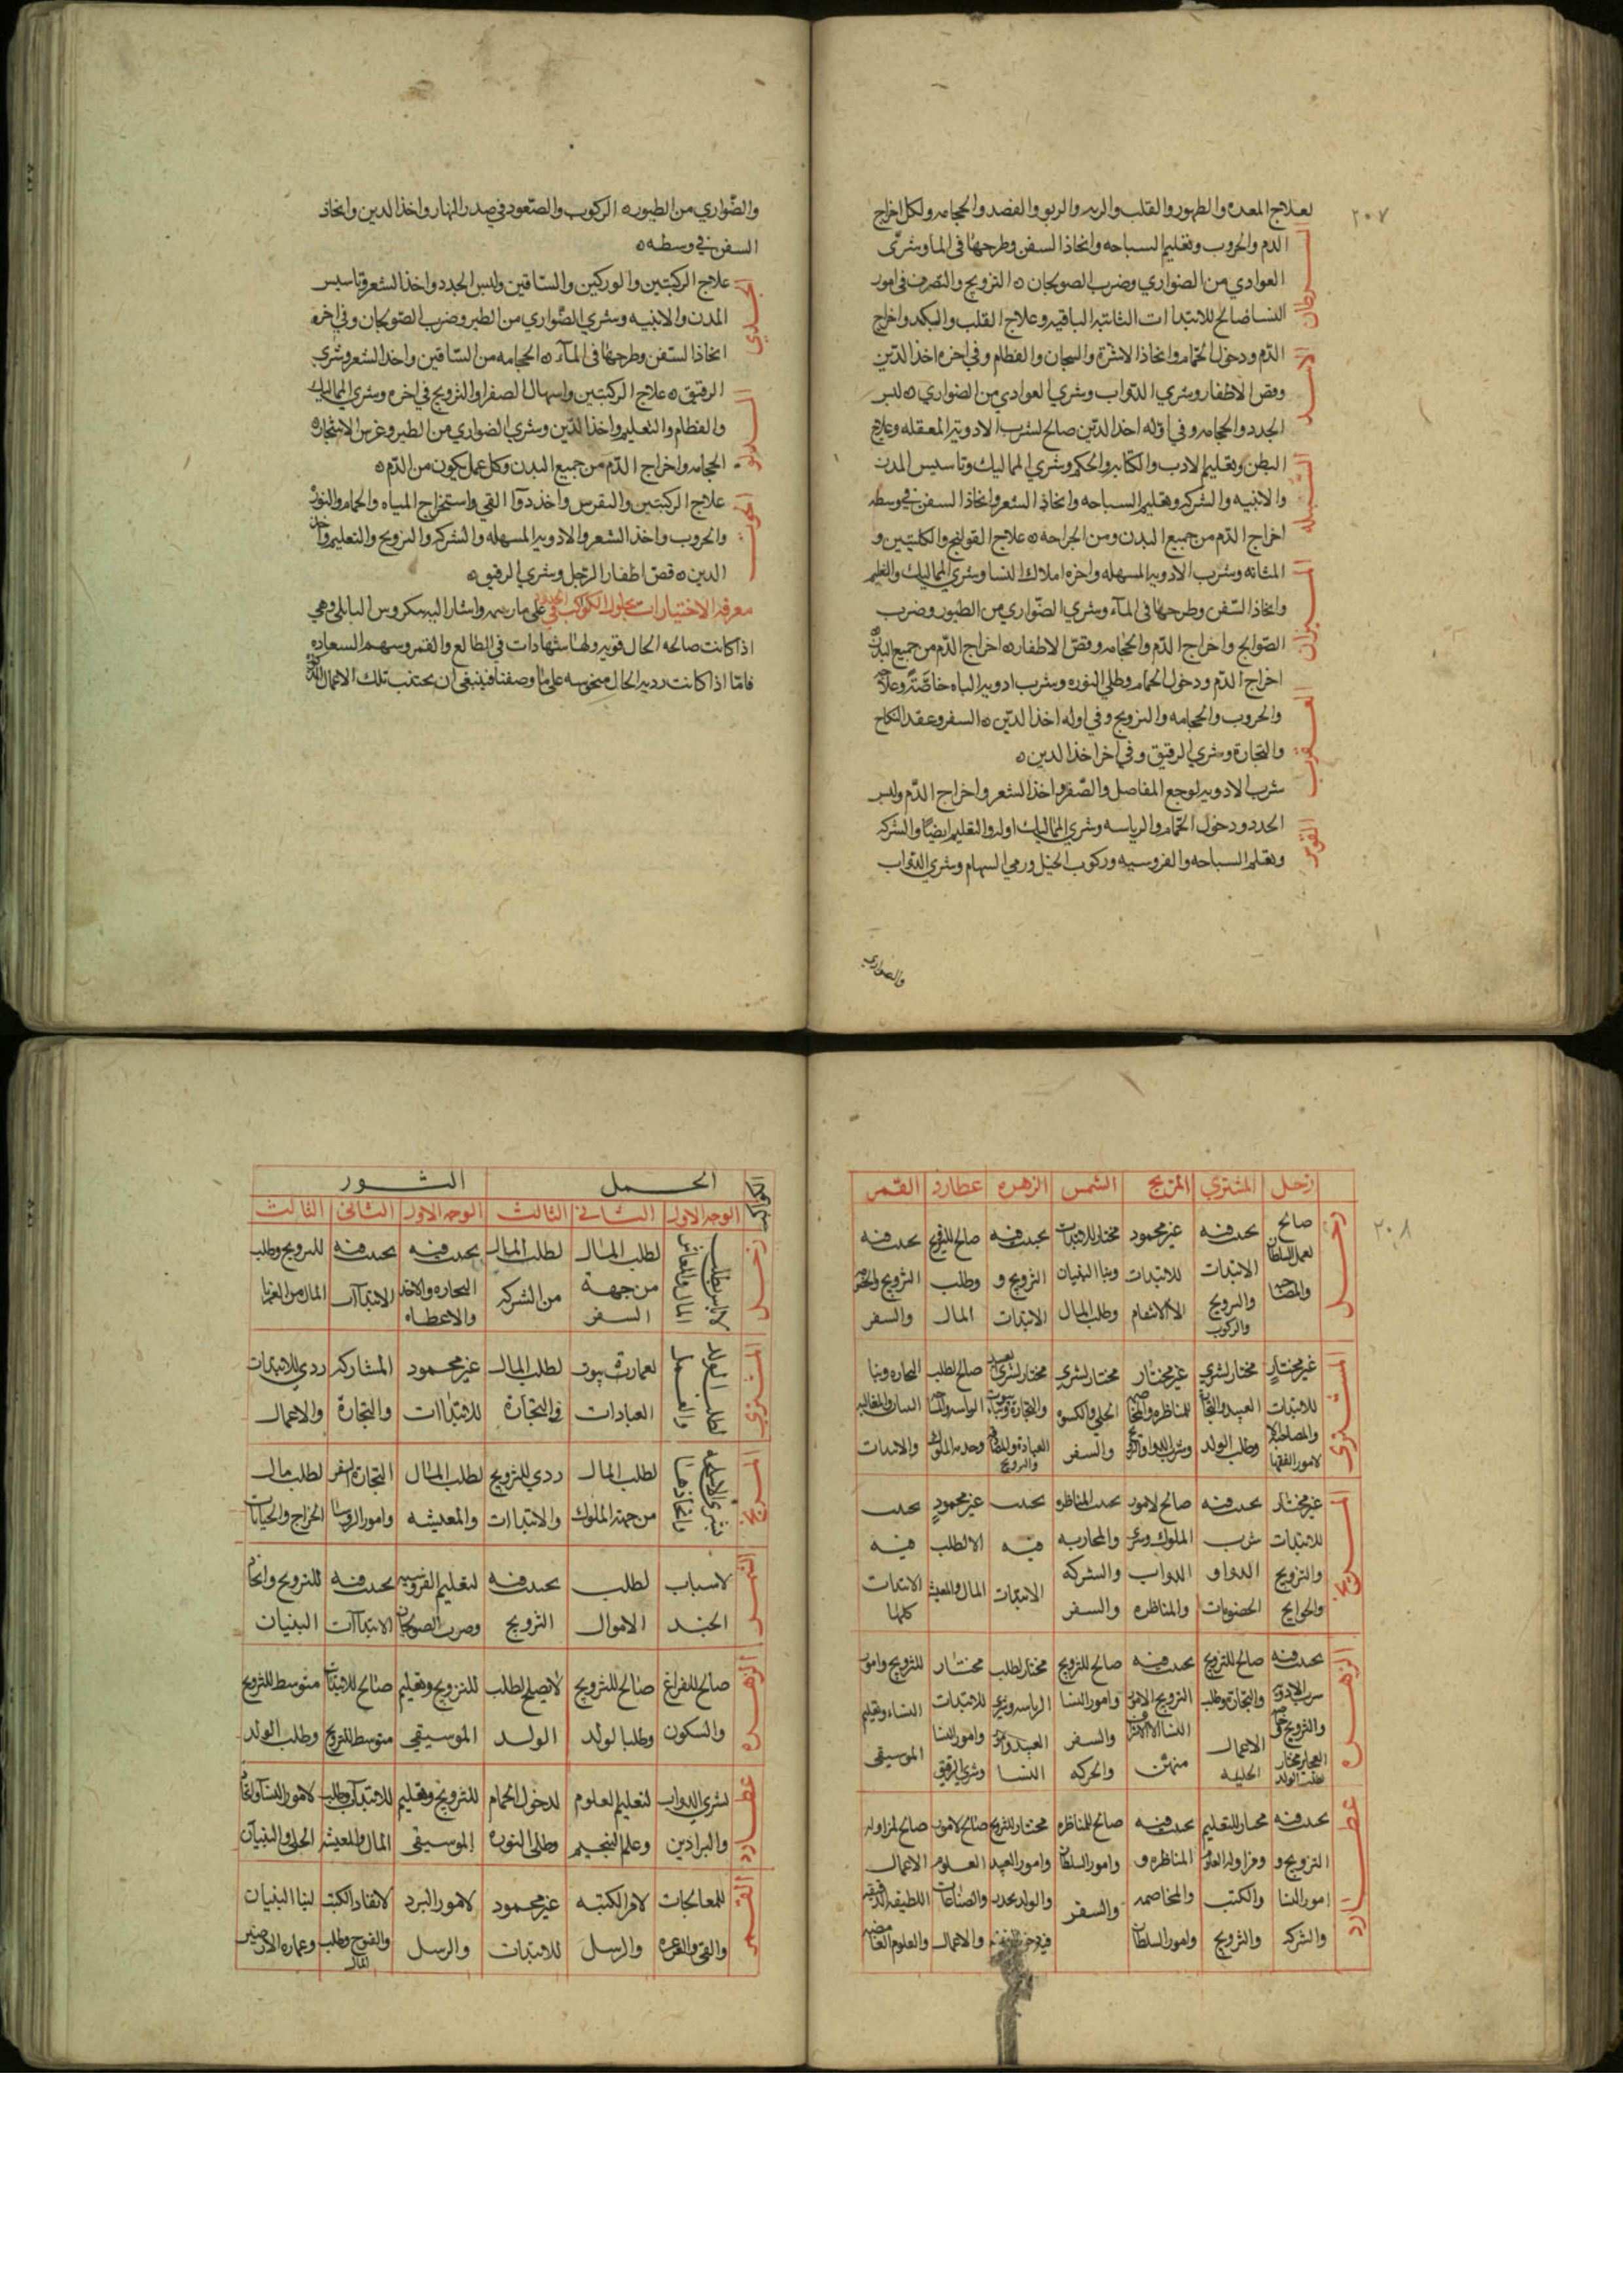 ٢٠٧
لعلاج المعده والظهور والقلب والريه والربو والفصد والحجامه ولكل اخراج
السرطان
الدم والحروب وتعليم السباحه واتخاذ السفن وطرحها في الما وشرى
العوادي من الضواري وضرب الصوبجان ه التزويج والتصرف في امور
النسا صالح للابتداات الثابته الباقيه وعلاج القلب والكبد واخراج
الاسد
الدم ودخول الحمام واتخاذ الاشربة والسجان والفطام وفي اخره اخذ الدين
وقص الاظفار وشري الدواب وشري العوادي من الضواري ه لبس
الجدد والحجامه وفي اوله اخذ الدين صالح لشرب الادويه المعقله وعلاج
السنبله
البطن وتعليم الادب والكتابه والحكم وشري المماليك وتاسيس المدن
والابنيه والشركه وتعليم السباحه واتخاذ الشعر واتخاذ السفن في وسطه
اخراج الدم من جميع البدن ومن الجراحه ه علاج القولنج والكليتين و
الميزان
المثانه وشرب الادويه المسهله واخره املاك النسا وشري المماليك والتعليم
واتخاذ السفن وطرحها في الماء وشري الضواري من الطيور وضرب
الصوالج واخراج الدم والحجامه وقص الاظفار ه اخراج الدم من جميع البدن
العقرب
اخراج الدم ودخول الحمام وطلي النوره وشرب ادويه الباه خاصة وعلاجه
والحروب والحجامه والتزويج وفي اوله اخذ الدين ه السفر وعقد النكاح
والتجارة وشري الرقيق وفي اخر اخذ الدين ه
القوس
شرب الادويه لوجع المفاصل والصفر واخذ الشعر واخراج الدم ولبس
الجدد ودخول الحمام والرياسه وشري المماليك اوله والتعليم ايضا والشركه
وتعلم السباحه والفروسيه وركوب الخيل ورمي السهام وشري الدواب
والضواري
والضواري من الطيور ه الركوب والصعود في صدر النهار واخذ الدين واتخاذ
السفن في وسطه ه
الجدي
علاج الركبتين والوركين والساقين ولبس الجدد واخذ الشعر وتاسيس
المدن والابنيه وشري الضواري من الطير وضرب الصوبجان وفي اخره
اتخاذ السفن وطرحها في الماء ه الحجامه من الساقين واخذ الشعر وشري
الدلو
الرقيق ه علاج الركبتين واسهال الصفرا والتزويج في اخره وشري المماليك
والفطام والتعليم واخذ الدين وشري الضواري من الطير وغرس الاشجار ه
الحجامه واخراج الدم من جميع البدن وكل عمل يكون من الدم ه
الحوت
علاج الركبتين والنقرس واخذ دواء القي واستخراج المياه والحمام والنوره
والحروب واخذ الشعر والادويه المسهله والشركه والتزويج والتعليم واخذ
الدين ه قص اظفار الرجل وشري الرقيق ه
معرفه الاختيارات بحلول الكواكب في على ما رسمه واشار اليه سكروس البابلي وهي
اذا كانت صالحه الحال قويه ولها شهادات في الطالع والقمر وسهم السعاده
فاما اذا كانت رديه الحال منحوسه على ما وصفنا فينبغي ان يجتنب تلك الاعمال
٢٠٨
زحل المشتري المريخ الشمس الزهره عطارد القمر
زحل
صالح لعمل السلطان
يحدث فيه الابتداات والتزويج والركوب
غير محمود للابتداات الا الانتقام
مختار للابتداات وبنا البنيان وطلب المال
يجتنب فيه التزويج و الابتداات
وطلب المال
يحدث فيه التزويج والسفر
المشتري
غير مختار للابتداات لامور الفقها
مختار لشري العبيد وطلب الولد
غير مختار للمناظره
مختار لشري الحلي والكسوه والسفر
صالح لطلب
والابتداات
المريخ
غير مختار للابتداات والتزويج والحوايج
يحدث فيه شرب الدواء و الخصومات
صالح لامور الملوك وشري الدواب والمناظره
يحدث المناظره والمحاربه والشركه والسفر
يحدث فيه الابتداات
غير محمود الا لطلب المال والمعيشه
يحدث فيه الابتداات كلها
الزهره
يحدث فيه شرب الادويه والتزويج
صالح للتزويج والتجاره وطلب الاعمال الجليله
يحدث فيه التزويج
صالح للتزويج وامور النسا والسفر والحركه
مختار لطلب الرياسه النسا
مختار للابتداات وامور النسا وشري الرقيق
للتزويج وامور النساء وتعليم الموسيقى
عطارد
يحدث فيه التزويج و امور النسا والشركه
مختار للتعليم ومزاوله العلوم والكتب والتزويج
يحدث فيه المناظره و والمخاصمه وامور السلطان
صالح للمناظره وامور السلطان والسفر
مختار للتزويج وامور العبيد
صالح لامور العلوم والصناعات والاعمال
صالح لمزاوله الاعمال اللطيفه والعلوم الغامضه
الحمل الثور
الوجه الاول الثاني الثالث الوجه الاول الثاني الثالث
زحل
لطلب المال من جهة السفر
لطلب المال من الشركه
يحدث فيه التجاره والاخذ والاعطاء
يحدث فيه الابتداات
للتزويج وطلب المال من الغربا
المشتري
لطلب الولد
لعمارة بيوت العبادات
لطلب المال في التجارة
غير محمود للابتداات
المشاركه والتجارة
ردي للابتداات والاعمال
المريخ
لطلب المال من جهة الملوك
ردي للتزويج والابتداات
لطلب المال والمعيشه
التجاره والسفر وامور الروسا
لطلب مال الخراج والجبايات
الشمس
لاسباب الجند
لطلب الاموال
يحدث فيه التزويج
لتعليم الفروسيه وضرب الصوبجان
يحدث فيه الابتداات
للتزويج واتخاذ البنيان
الزهره
صالح للفراغ والسكون
صالح للتزويج وطلب الولد
لا يصلح لطلب الولد
للتزويج وتعليم الموسيقي
صالح للابتداات متوسط للتزويج
متوسط للتزويج وطلب الولد
عطارد
لشري الدواب والبرادين
لتعليم العلوم وعلم التنجيم
لدخول الحمام وطلي النوره
للتزويج وتعليم الموسيقى
للابتداات وطلب المال والمعيشه
لامور النسا واتخاذ الحلي والبنيان
القمر
للمعالجات والقي والغرغره
لامر الكتبه والرسل
غير محمود للابتداات
لامور البرد والرسل
لانفاد الكتب والفتوح وطلب المال
لبنا البنيان وعماره الارضين